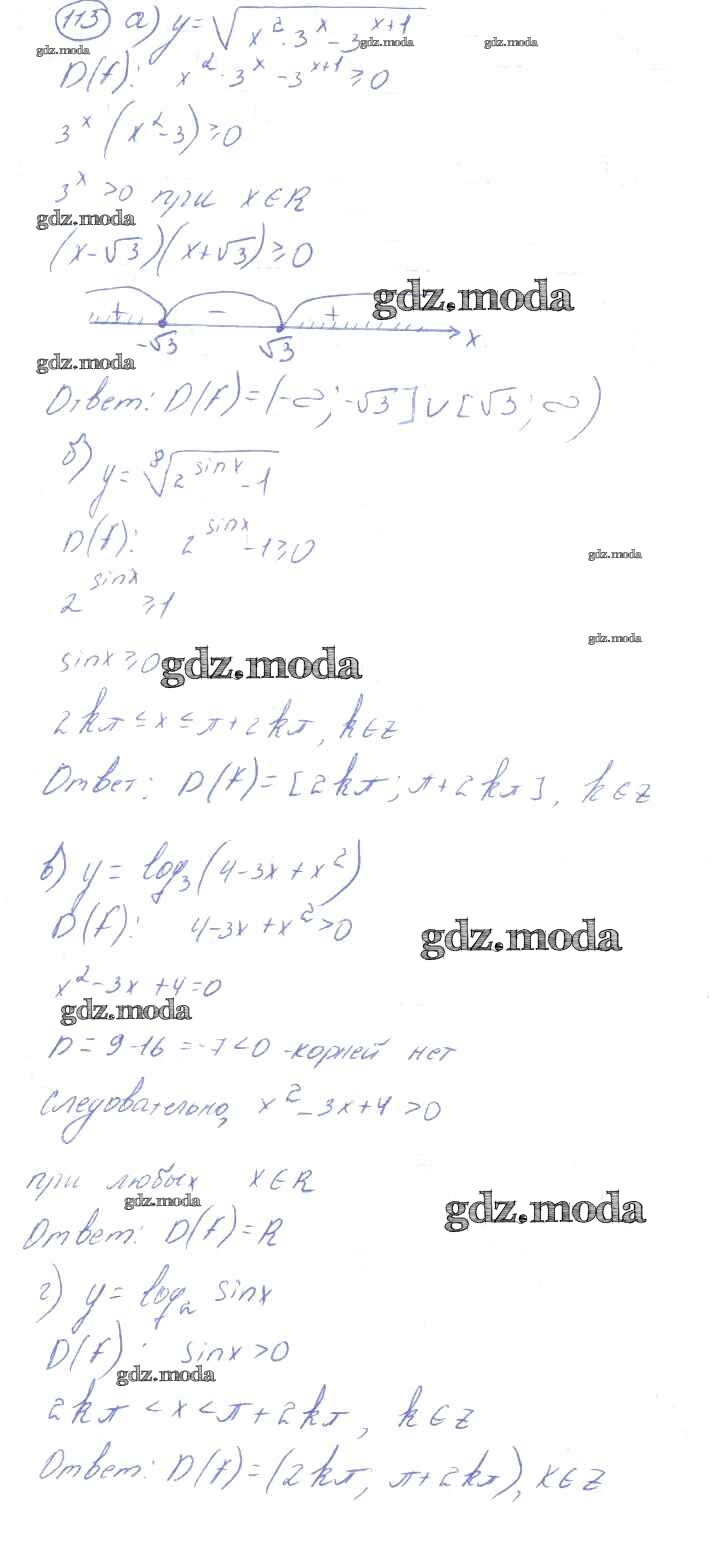 115 а) y = √(x² · 3ˣ − 3ˣ⁺¹)
gdz.moda gdz.moda gdz.moda
D(f): x² · 3ˣ − 3ˣ⁺¹ ≥ 0
3ˣ (x² − 3) ≥ 0
3ˣ > 0 при x ∈ R
gdz.moda
(x − √3)(x + √3) ≥ 0
gdz.moda
+ − +
−√3 √3 x
gdz.moda
Ответ: D(f) = (−∞; −√3] ∪ [√3; ∞)
б) y = ⁸√(2^(sinx) − 1)
D(f): 2^(sinx) − 1 ≥ 0
gdz.moda
2^(sinx) ≥ 1
gdz.moda
sinx ≥ 0
gdz.moda
2kπ ≤ x ≤ π + 2kπ, k ∈ z
Ответ: D(f) = [2kπ; π + 2kπ], k ∈ z
в) y = log₃(4 − 3x + x²)
D(f): 4 − 3x + x² > 0
gdz.moda
x² − 3x + 4 = 0
gdz.moda
D = 9 − 16 = −7 < 0 - корней нет
Следовательно, x² − 3x + 4 > 0
при любых x ∈ R
gdz.moda gdz.moda
Ответ: D(f) = R
г) y = log₂ sinx
D(f): sinx > 0
gdz.moda
2kπ < x < π + 2kπ, k ∈ z
Ответ: D(f) = (2kπ, π + 2kπ), x ∈ z